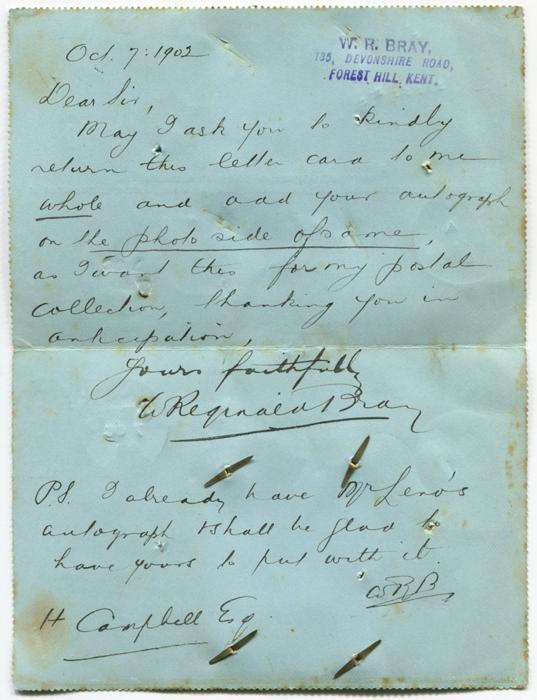 Oct. 7: 1902
W. R. BRAY,
135, DEVONSHIRE ROAD,
FOREST HILL, KENT.
Dear Sir,
May I ask you to kindly
return this letter card to me
whole and add your autograph
on the photo side of same,
as I want this for my postal
collection, thanking you in
anticipation,
Yours faithfully
W Reginald Bray
P.S. I already have Mr Leno's
autograph & shall be glad to
have yours to put with it.
WRB
H Campbell Esq.